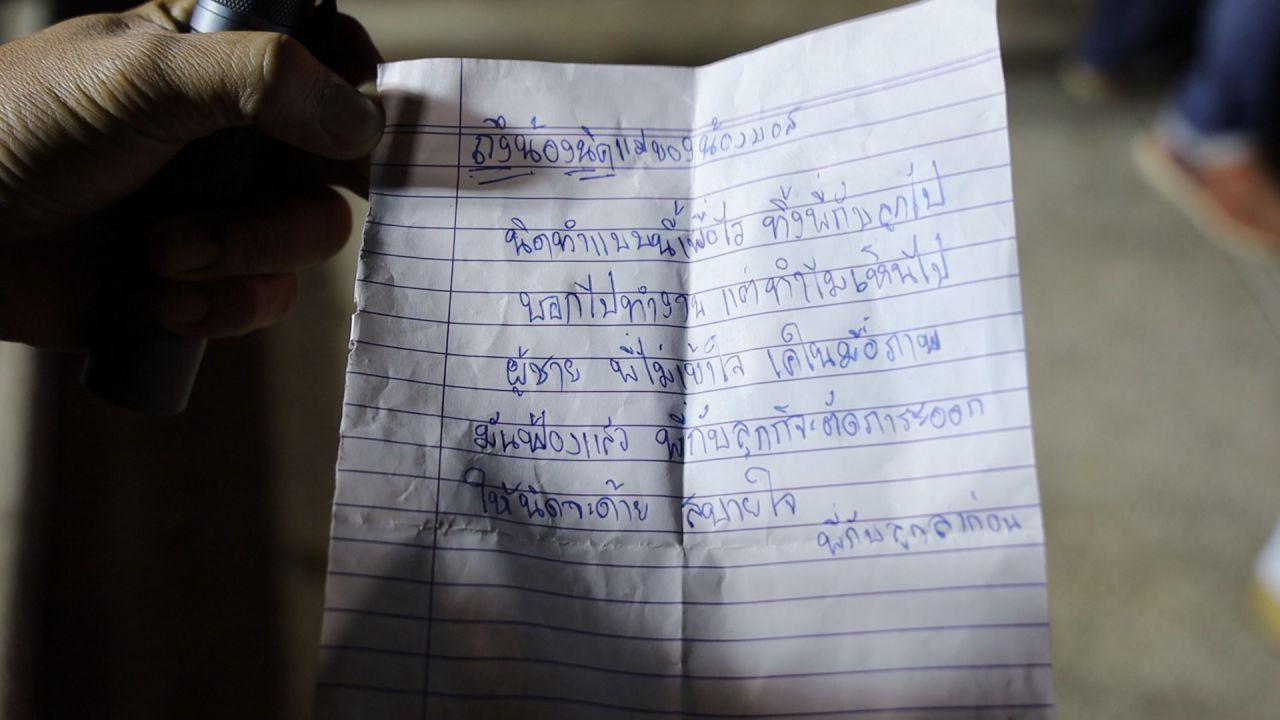 ถึงน้องนิดแม่ของน้องบอส
นิดทำแบบนี้เพื่อไร ทิ้งพี่กับลูกไป
บอกไปทำงาน แต่ทำไมเห็นไป
ผู้ชาย พี่ไม่เข้าใจ เคในมือภาพ
มันฟ้องแล้ว พี่กับลูกก็จะตัดภาระออก
ให้นิดจะด้าย สบายใจ
พี่กับลูกลาก่อน